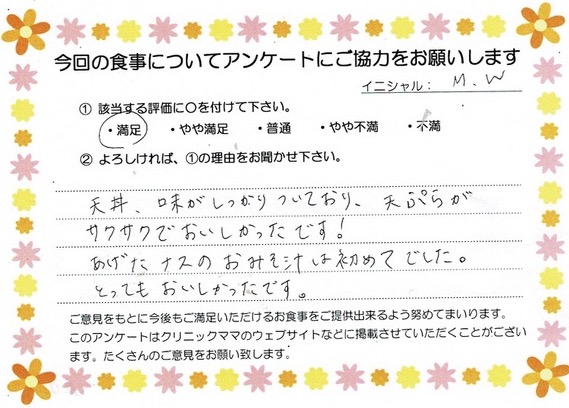 今回の食事についてアンケートにご協力をお願いします
イニシャル： M.W
① 該当する評価に○を付けて下さい。
・満足 ・やや満足 ・普通 ・やや不満 ・不満
② よろしければ、①の理由をお聞かせ下さい。
天丼、味がしっかりついており、天ぷらが
サクサクでおいしかったです！
あげたナスのおみそ汁は初めてでした。
とってもおいしかったです。
ご意見をもとに今後もご満足いただけるお食事をご提供出来るよう努めてまいります。
このアンケートはクリニックママのウェブサイトなどに掲載させていただくことがござい
ます。たくさんのご意見をお願い致します。